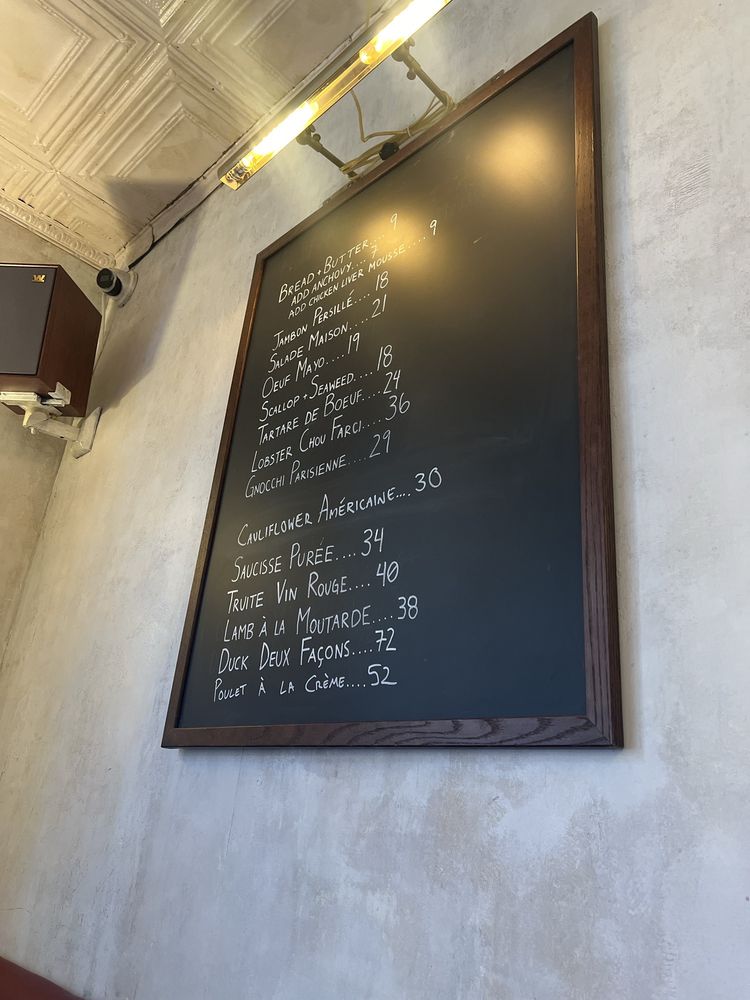 BREAD + BUTTER.... 9
ADD ANCHOVY.... 7
ADD CHICKEN LIVER MOUSSE.... 9
JAMBON PERSILLÉ.... 18
SALADE MAISON.... 21
OEUF MAYO.... 19
SCALLOP + SEAWEED.... 18
TARTARE DE BOEUF.... 24
LOBSTER CHOU FARCI.... 36
GNOCCHI PARISIENNE.... 29
CAULIFLOWER AMÉRICAINE.... 30
SAUCISSE PURÉE.... 34
TRUITE VIN ROUGE.... 40
LAMB À LA MOUTARDE.... 38
DUCK DEUX FAÇONS.... 72
POULET À LA CRÈME.... 52